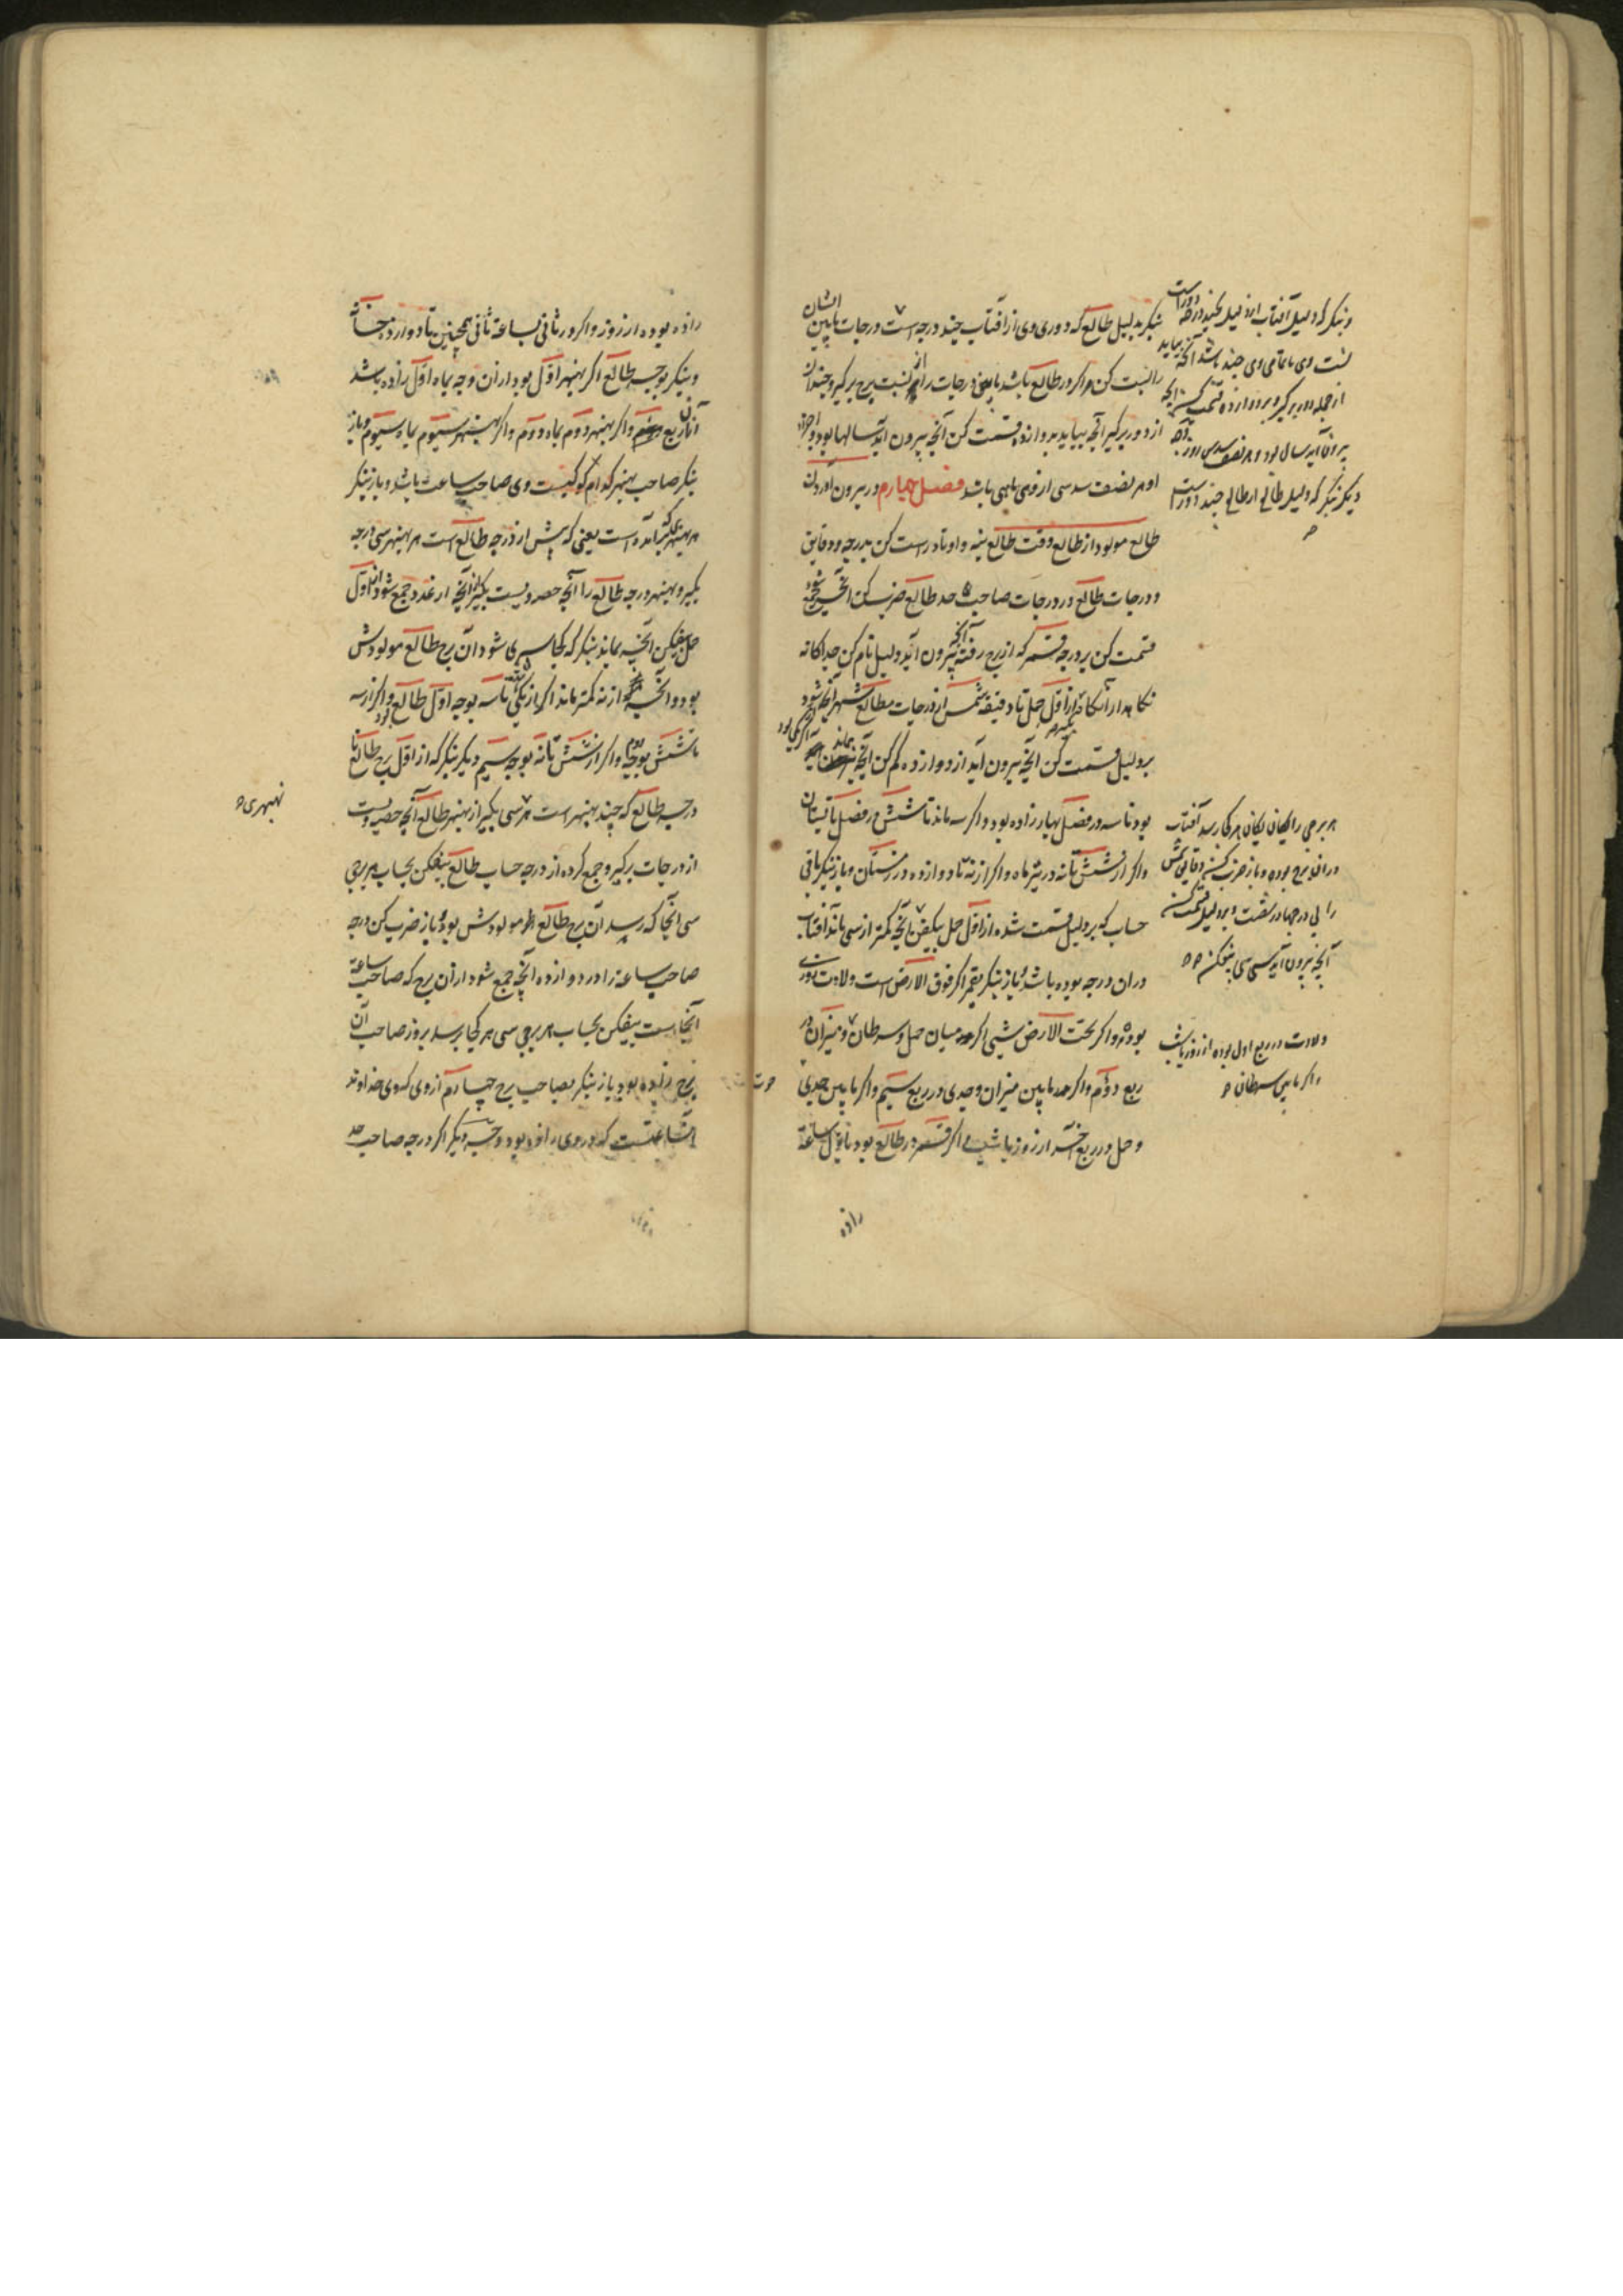 بنگر بدلیل طالع که دوری وی از آفتاب چند درجه است و درجات مابین ایشان
را نسبت کن و اگر در طالع باشد مابین درجات را از نسبت برج برگیر و چندان
از دور برگیر آنچه بیاید بدوازده قسمت کن آنچه بیرون آید سالها بود و اجزاء
او هر نصف سدسی از وی ماهی باشد فصل چهارم در بیرون آوردن
طالع مولود از طالع وقت طالع بنه و اوتاد راست کن بدرجه و دقایق
و درجات طالع در درجات صاحب حد طالع ضرب کن آنچه جمع شود
قسمت کن بر درجه قمر که از برج رفته آنچه بیرون آید دلیل نام کن جداگانه
نگاه دار آنگاه از اول حمل تا دقیقه شمس از درجات مطالع بگیر آنچه شود
بر دلیل قسمت کن آنچه بیرون آید از دوازده کم کن آنچه بماند اگر یکی بود
بود تا سه در فصل بهار زاده بود و اگر سه ماند تا شش در فصل تابستان
و اگر از شش تا نه در تیر ماه و اگر از نه تا دوازده در زمستان و باز بنگر باقی
حساب که بر دلیل قسمت شده از اول حمل بیفکن تا آنچه کمتر از سی ماند آفتاب
در ان درجه بوده باشد باز بنگر بقمر اگر فوق الارض است ولادت بروزی
بوده و اگر تحت الارض بشبی اگر میان حمل و سرطان و میزان در
ربع دوم و اگر مابین میزان و جدی در ربع سیم و اگر مابین جدی
و حمل در ربع آخر از روز یا شب اگر قمر در طالع بود باول ساعة
زاده
و بنگر که دلیل آفتاب از دلیل چند درجه دور است
نسبت وی با تمامی وی چند باشد آنچه بیاید
از جمله دور برگیر و بر دوازده قسمت کن آنچه
بیرون آید سال بود و هر نصف سدس
دیگر بنگر که دلیل طالع از طالع چند دور است
هر برجی را یکان یکان هر کجا رسد آفتاب
در ان برج بوده و باز ضرب کن دقایق شمس
را بی درجها در شصت و بر دلیل قسمت کن
آنچه بیرون آید سی سی بیفکن
ولادت در ربع اول بوده از روز یا شب
و اگر مابین سرطان
زاده بوده از روز و اگر در ثانی بساعة ثانی همچنین تا دوازده خانه
و بنگر بوجه طالع اگر بهنبهر اول بود از ان وجه بماه اول زاده باشد
از ان ربع و اگر بهنبهر دوم بماه دوم و اگر بهنبهر سیوم بماه سیوم و باز
بنگر صاحب بنهبر کدام کوکبست وی صاحب ساعت باشد و باز بنگر
هر نهبهر که برآمده است یعنی که پیش از درجه طالع است هر نهبهر سی درجه
بگیر و نهبهر درجه طالع را آنچه حصه ویست بگیر آنچه از عدد جمع شود از اول
حمل بیفکن آنچه بماند بنگر که کجا سپری شود آن برج طالع مولودش
بود و آنچه از نه کمتر ماند اگر از یکی تا سه بوجه اول طالع بود و اگر از سه
تا شش بوجه دوم و اگر از شش تا نه بوجه سیم دیگر بنگر که از اول برج طالع تا
درجه طالع که چند نهبهر است هر سی بگیر از نهبهر طالع آنچه حصه ویست
از درجات برگیر و جمع کرده از درجه حساب طالع بیفکن بحساب هر برجی
سی آنجا که رسد آن برج طالع مولودش بود باز ضرب کن درجه
صاحب ساعة را در دوازده آنچه جمع شود از ان برج که صاحب ساعة
آنجاست بیفکن بحساب هر برجی سی هر کجا برسد بروز صاحب آن
برج زاده بود باز بنگر بصاحب برج چهارم از وی که وی خداوند
آن ساعتست که در وی زاده بود وجه دیگر اگر درجه صاحب حد
نهبهری
حوت